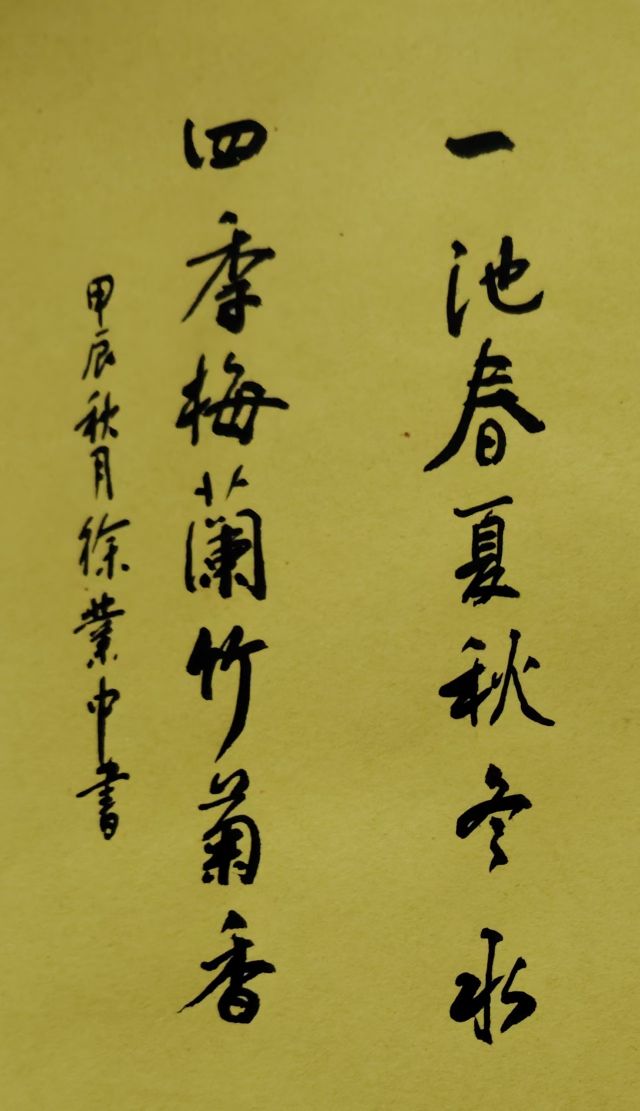 一池春夏秋冬水
四季梅蘭竹菊香
甲辰秋月徐業中書